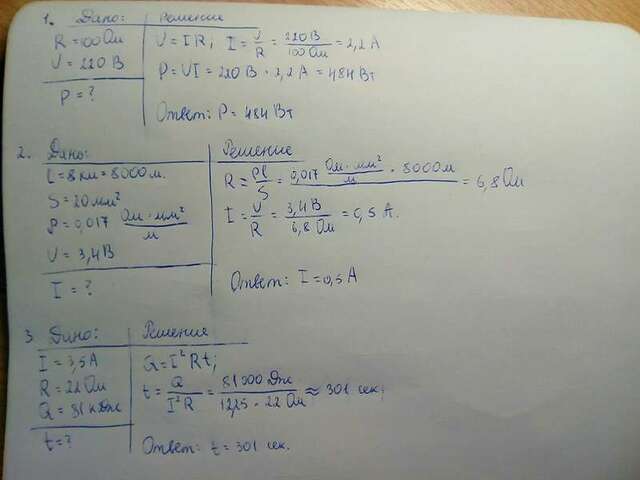 1. Дано: Решение
R = 100 Ом
U = 220 В
P = ?
U = IR; I = U/R = 220 В / 100 Ом = 2,2 А
P = UI = 220 В · 2,2 А = 484 Вт
Ответ: P = 484 Вт
2. Дано:
l = 8 км = 8000 м.
S = 20 мм²
ρ = 0,017 Ом · мм² / м
U = 3,4 В
I = ?
Решение
R = ρl/S = 0,017 Ом · мм²/м · 8000 м = 6,8 Ом
I = U/R = 3,4 В / 6,8 Ом = 0,5 А.
Ответ: I = 0,5 А
3. Дано: Решение
I = 3,5 А
R = 22 Ом
Q = 81 кДж
t = ?
Q = I² Rt;
t = Q / I²R = 81 000 Дж / 12,25 · 22 Ом ≈ 301 сек;
Ответ: t = 301 сек.